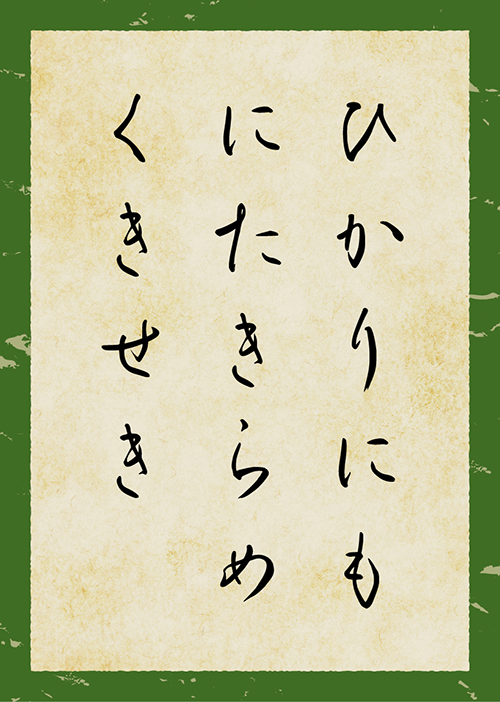 ひかりにも
にたきらめ
くきせき